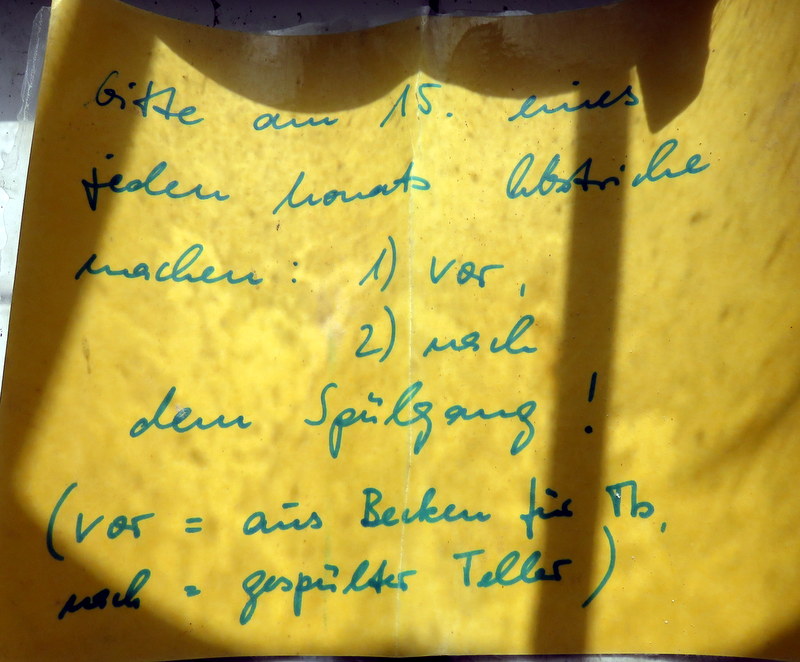 bitte am 15. eines
jeden Monats Abstriche
machen: 1) vor,
2) nach
dem Spülgang!
(vor = aus Becken für
nach = gespülter Teller)